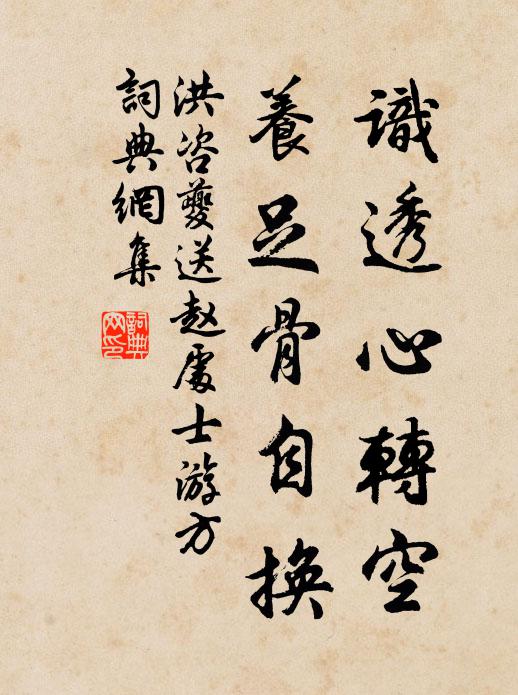 識透心轉空
養足骨自換
洪咨夔送赵處士游方
詞典網集
詞典網印